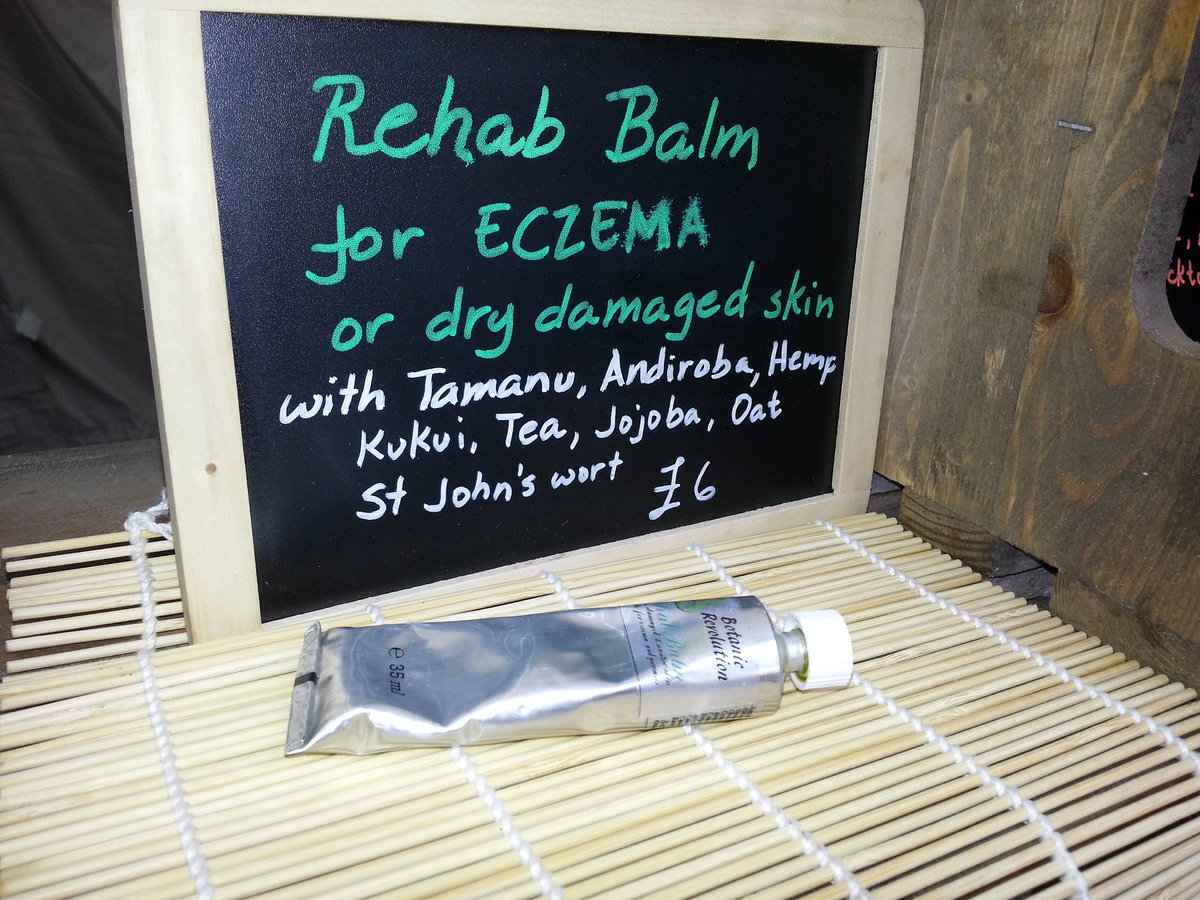 Rehab Balm
for ECZEMA
or dry damaged skin
with Tamanu, Andiroba, Hemp
Kukui, Tea, Jojoba, Oat
St John's wort £6
Botanic
Revolution
Balm
e 35 ml